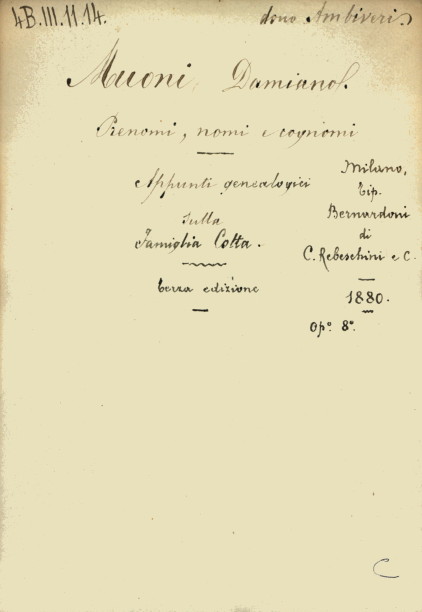 4B.III.11.14.
dono Ambiveri.
Muoni, Damiano.
Prenomi, nomi e cognomi
Appunti genealogici
sulla
Famiglia Cotta.
terza edizione
Milano,
tip.
Bernardoni
di
C. Rebeschini e C.
1880.
Op.º 8º.
C